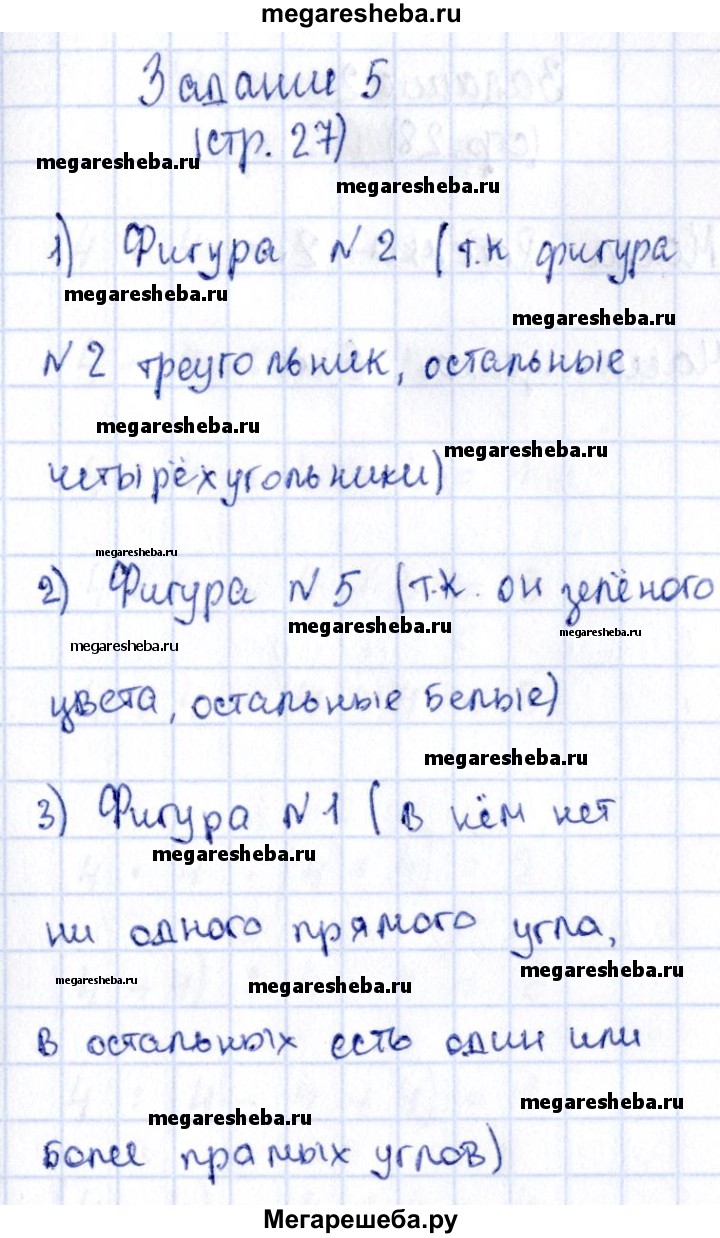 megaresheba.ru
Задание 5
(стр. 27)
megaresheba.ru
megaresheba.ru
1) Фигура №2 (т.к фигура
megaresheba.ru
megaresheba.ru
№2 треугольник, остальные
megaresheba.ru
megaresheba.ru
четырёхугольники)
megaresheba.ru
2) Фигура №5 (т.к. он зелёного
megaresheba.ru
megaresheba.ru
megaresheba.ru
цвета, остальные белые)
megaresheba.ru
3) Фигура №1 (в нём нет
megaresheba.ru
ни одного прямого угла,
megaresheba.ru
megaresheba.ru
megaresheba.ru
в остальных есть один или
megaresheba.ru
megaresheba.ru
более прямых углов)
Мегарешеба.ру